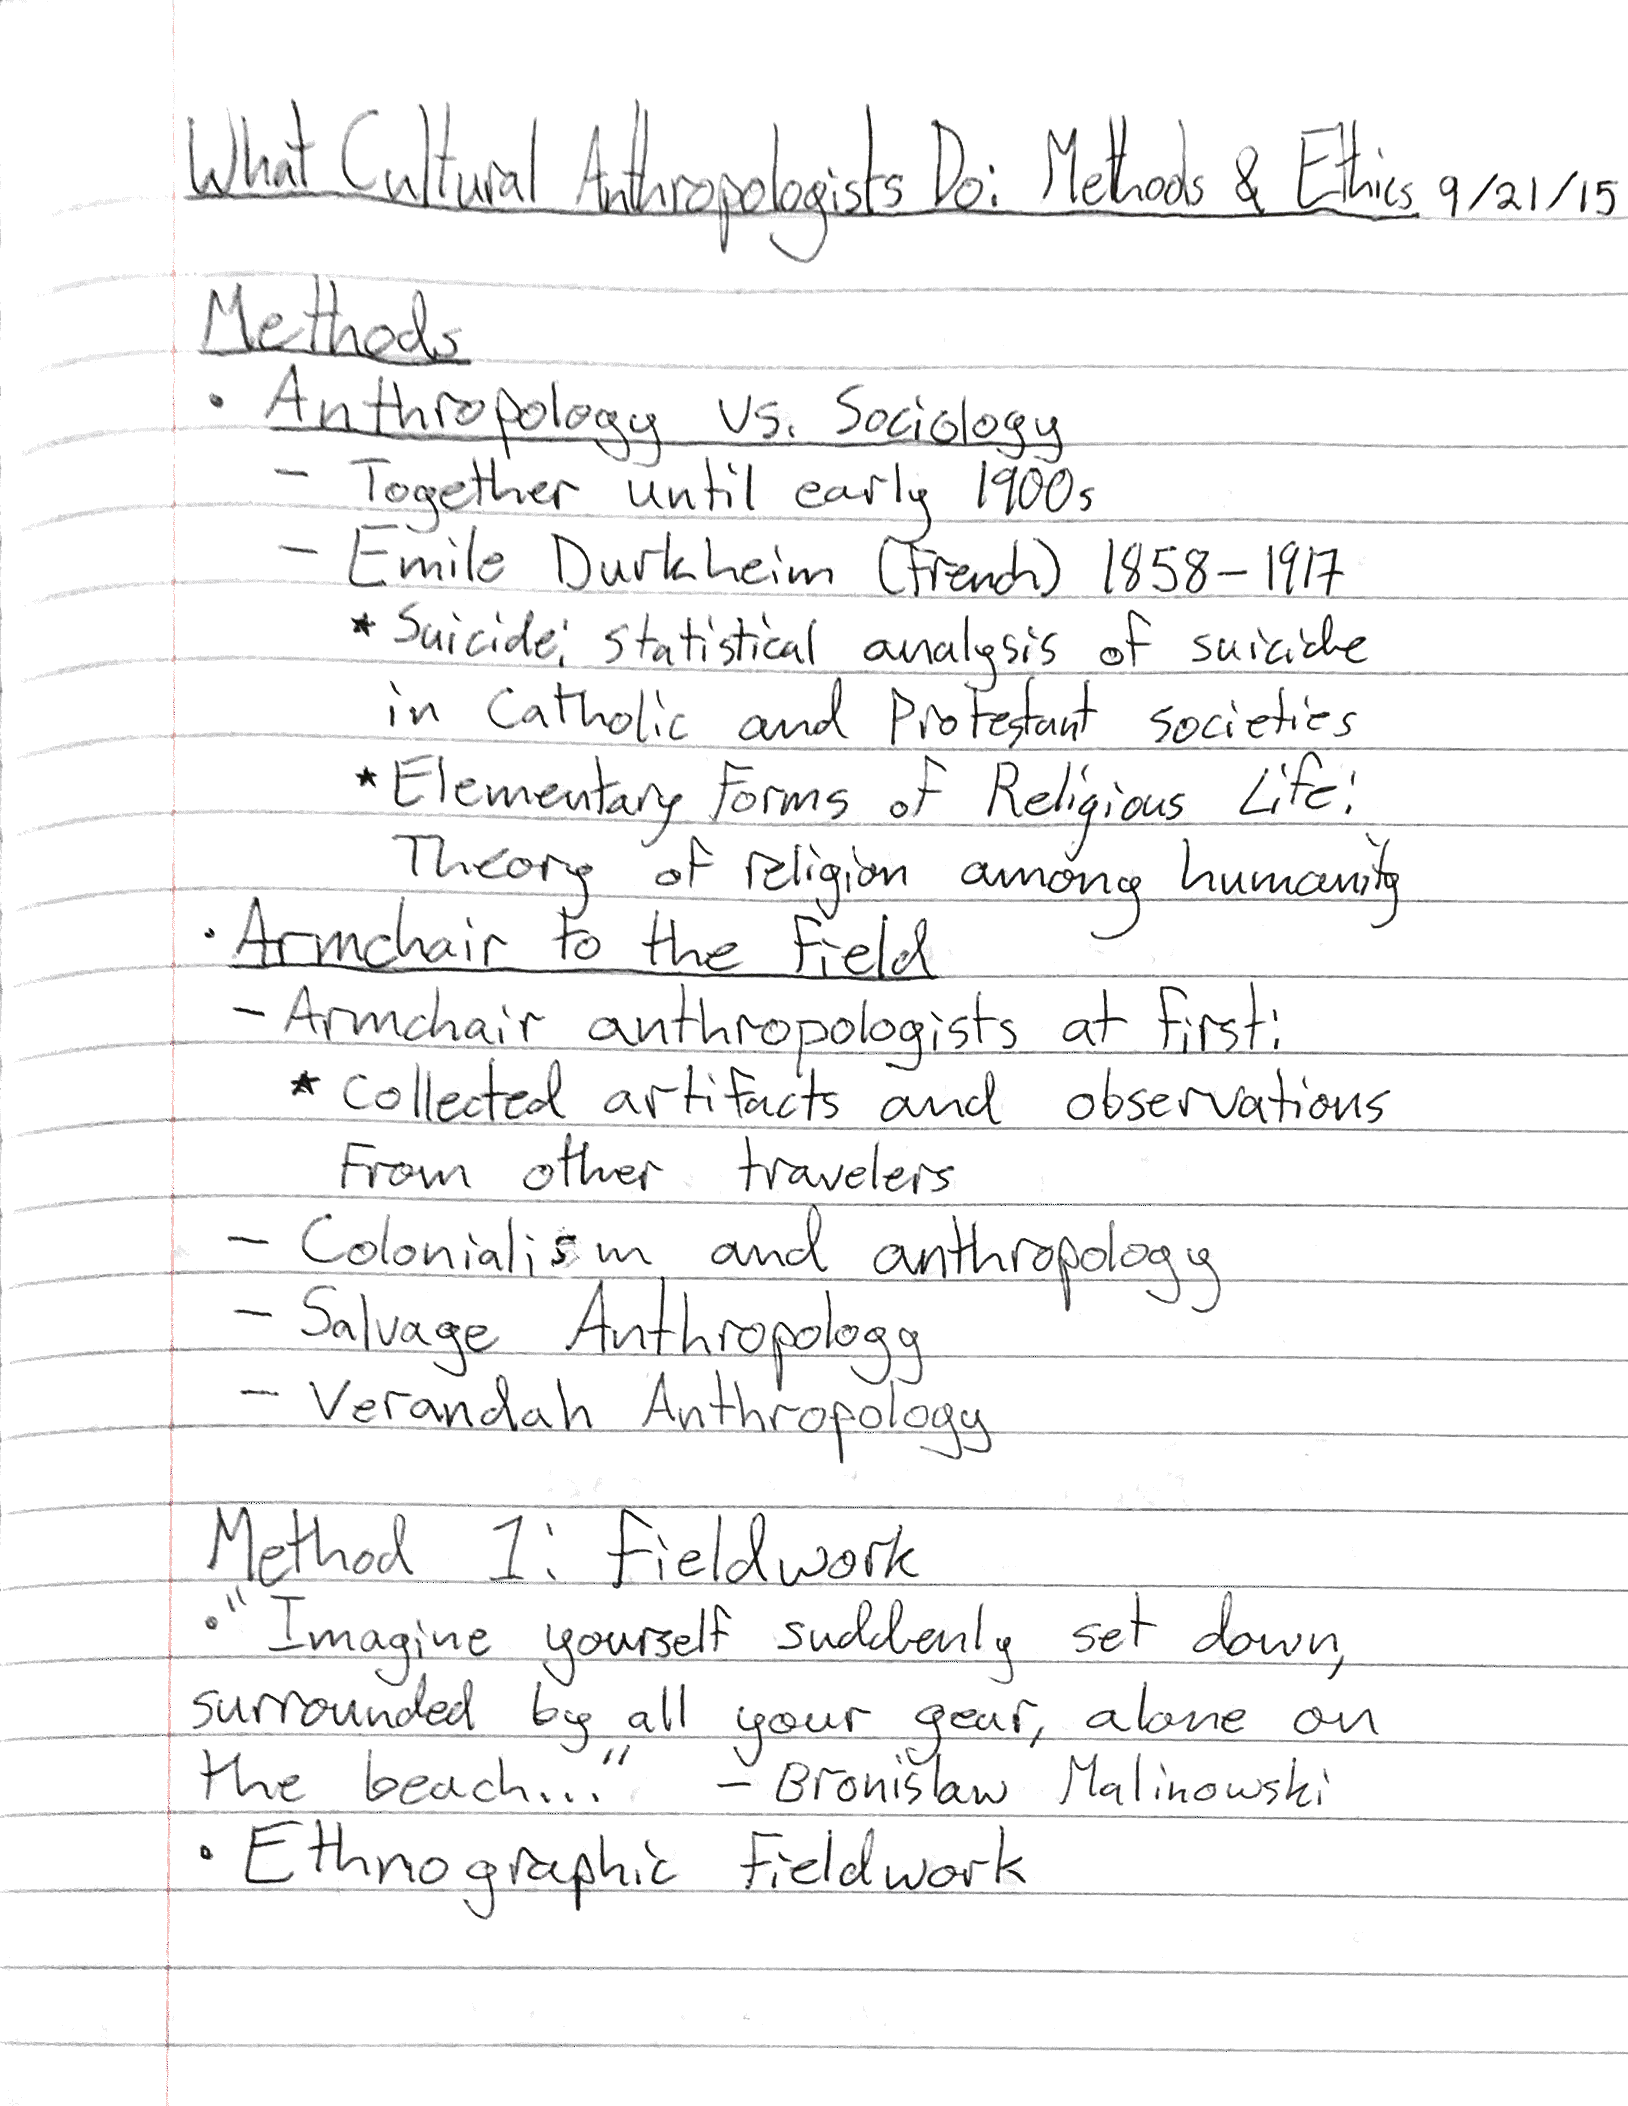 What Cultural Anthropologists Do: Methods & Ethics 9/21/15
Methods
• Anthropology vs. Sociology
- Together until early 1900s
- Emile Durkheim (French) 1858-1917
* Suicide: statistical analysis of suicide
in Catholic and Protestant societies
* Elementary Forms of Religious Life:
Theory of religion among humanity
• Armchair to the Field
- Armchair anthropologists at first:
* Collected artifacts and observations
From other travelers
- Colonialism and anthropology
- Salvage Anthropology
- Verandah Anthropology
Method 1: Fieldwork
• "Imagine yourself suddenly set down,
surrounded by all your gear, alone on
the beach..." - Bronislaw Malinowski
• Ethnographic Fieldwork